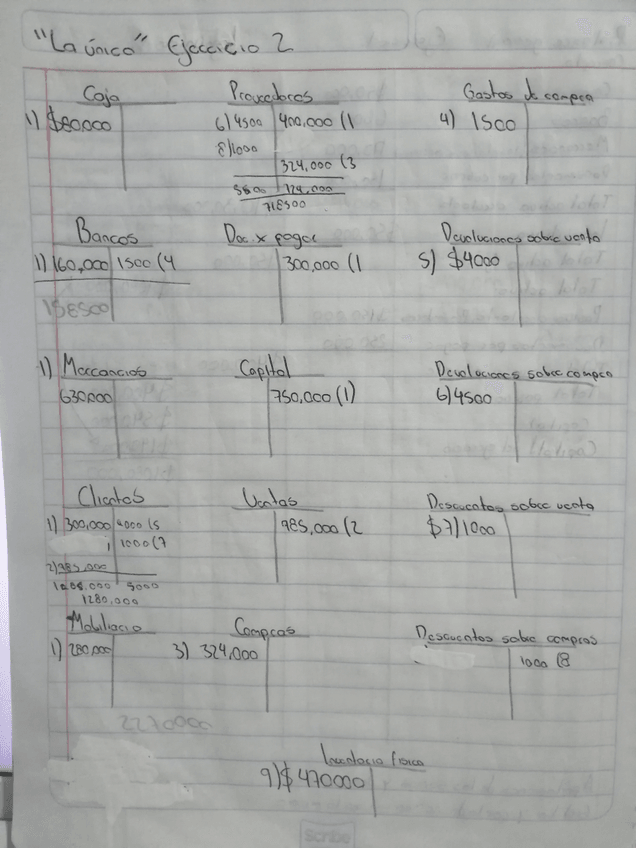 "La única" Ejercicio 2
Caja
1) $80,000
Proveedores
6) 4500 400,000 (1
8) 1000
324,000 (3
5500 724,000
718500
Gastos de compra
4) 1500
Bancos
1) 160,000 1500 (4
158500
Doc x pagar
300,000 (1
Devoluciones sobre venta
5) $4000
1) Mercancias
630,000
Capital
750,000 (1)
Devoluciones sobre compra
6) 4500
Clientes
1) 300,000 4000 (5
1000 (7
2) 985,000
5000
1280,000
Ventas
985,000 (2
Descuentos sobre venta
$ 7) 1000
Mobiliario
1) 280,000
Compras
3) 324,000
Descuentos sobre compras
1000 (8
2270000
Inventario fisico
9) $ 470000
scribe